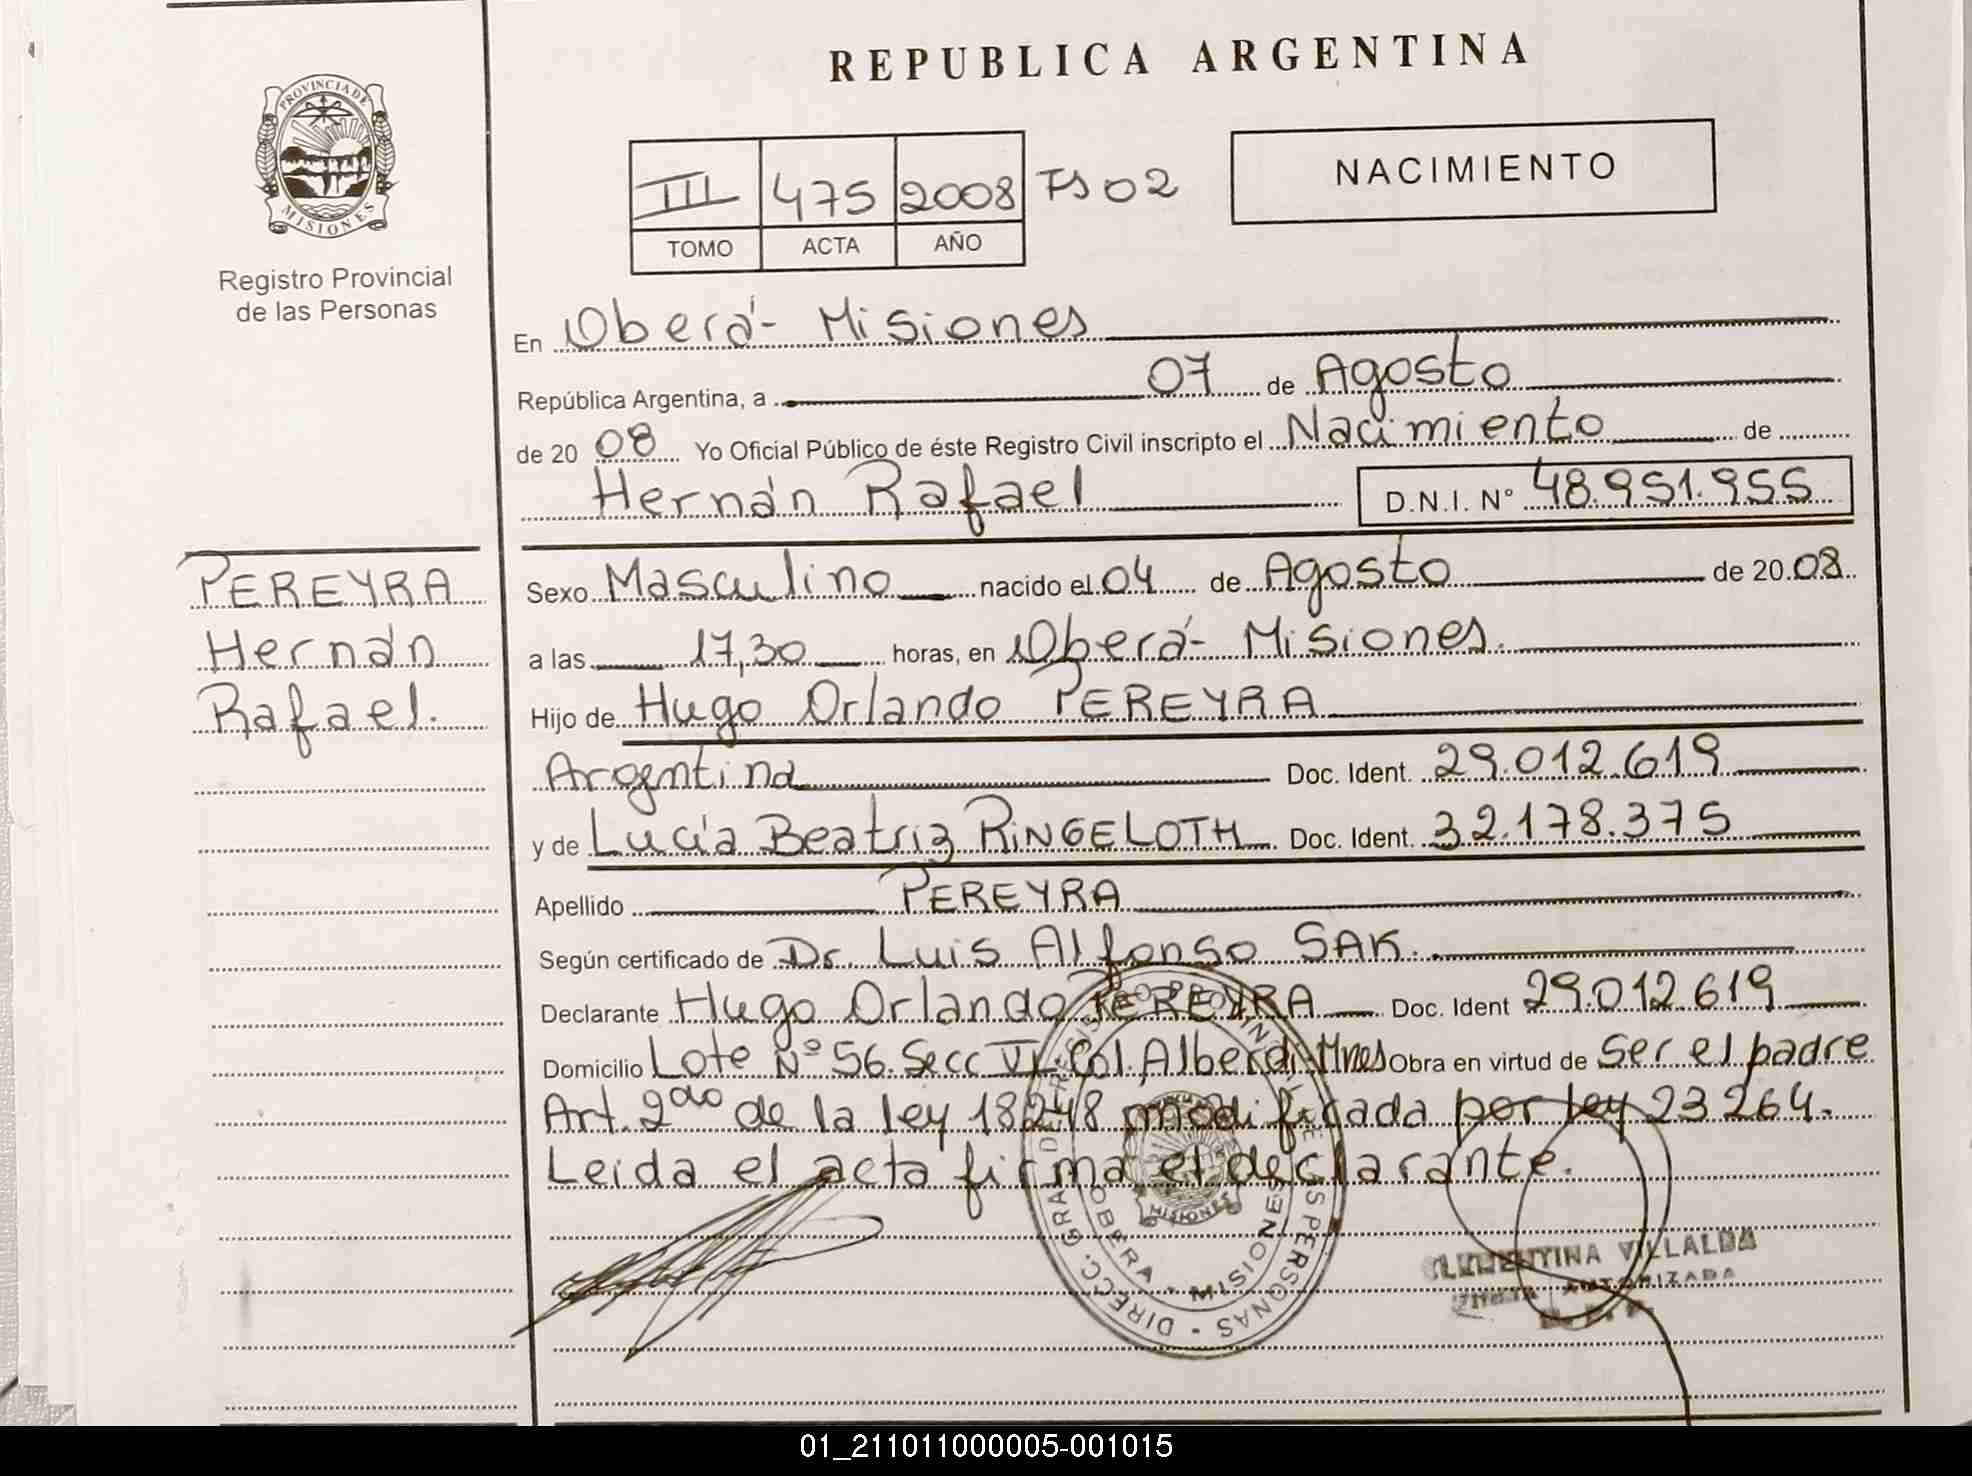 REPUBLICA ARGENTINA
PROVINCIA DE
MISIONES
Registro Provincial
de las Personas
III 475 2008 Fs 02
TOMO ACTA AÑO
NACIMIENTO
En Oberá - Misiones
República Argentina, a 07 de Agosto
de 20 08 Yo Oficial Público de éste Registro Civil inscripto el Nacimiento de
Hernán Rafael D.N.I. N° 48.951.955
PEREYRA
Hernán
Rafael.
Sexo Masculino nacido el 04 de Agosto de 20 08
a las 17,30 horas, en Oberá - Misiones.
Hijo de Hugo Orlando PEREYRA
Argentina Doc. Ident. 29.012.619
y de Lucía Beatriz RINGELOTH Doc. Ident. 32.178.375
Apellido PEREYRA
Según certificado de Dr. Luis Alfonso SAK.
Declarante Hugo Orlando PEREYRA Doc. Ident 29.012.619
Domicilio Lote Nº 56. Secc VI Col. Alberdi - Mnes Obra en virtud de Ser el padre
Art. 2do de la ley 18248 modificada por ley 23264.
Leida el acta firma el declarante.
OBERA - MISIONES
VILLALBA
AUTORIZADA
01_211011000005-001015